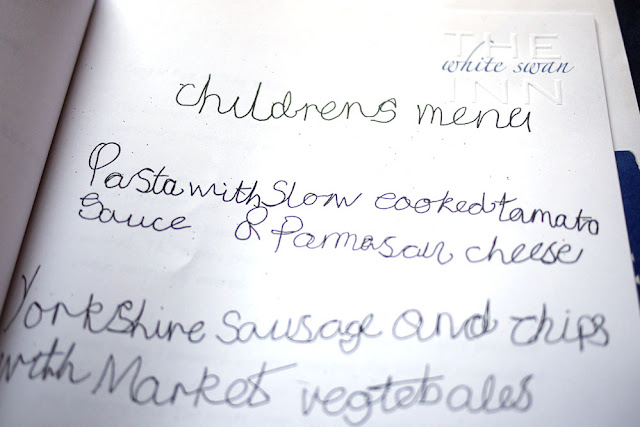 THE
white swan
INN
childrens menu
Pasta with Slow cooked tamato
Sauce & Parmasan cheese
Yorkshire Sausage and chips
with Market vegtebales